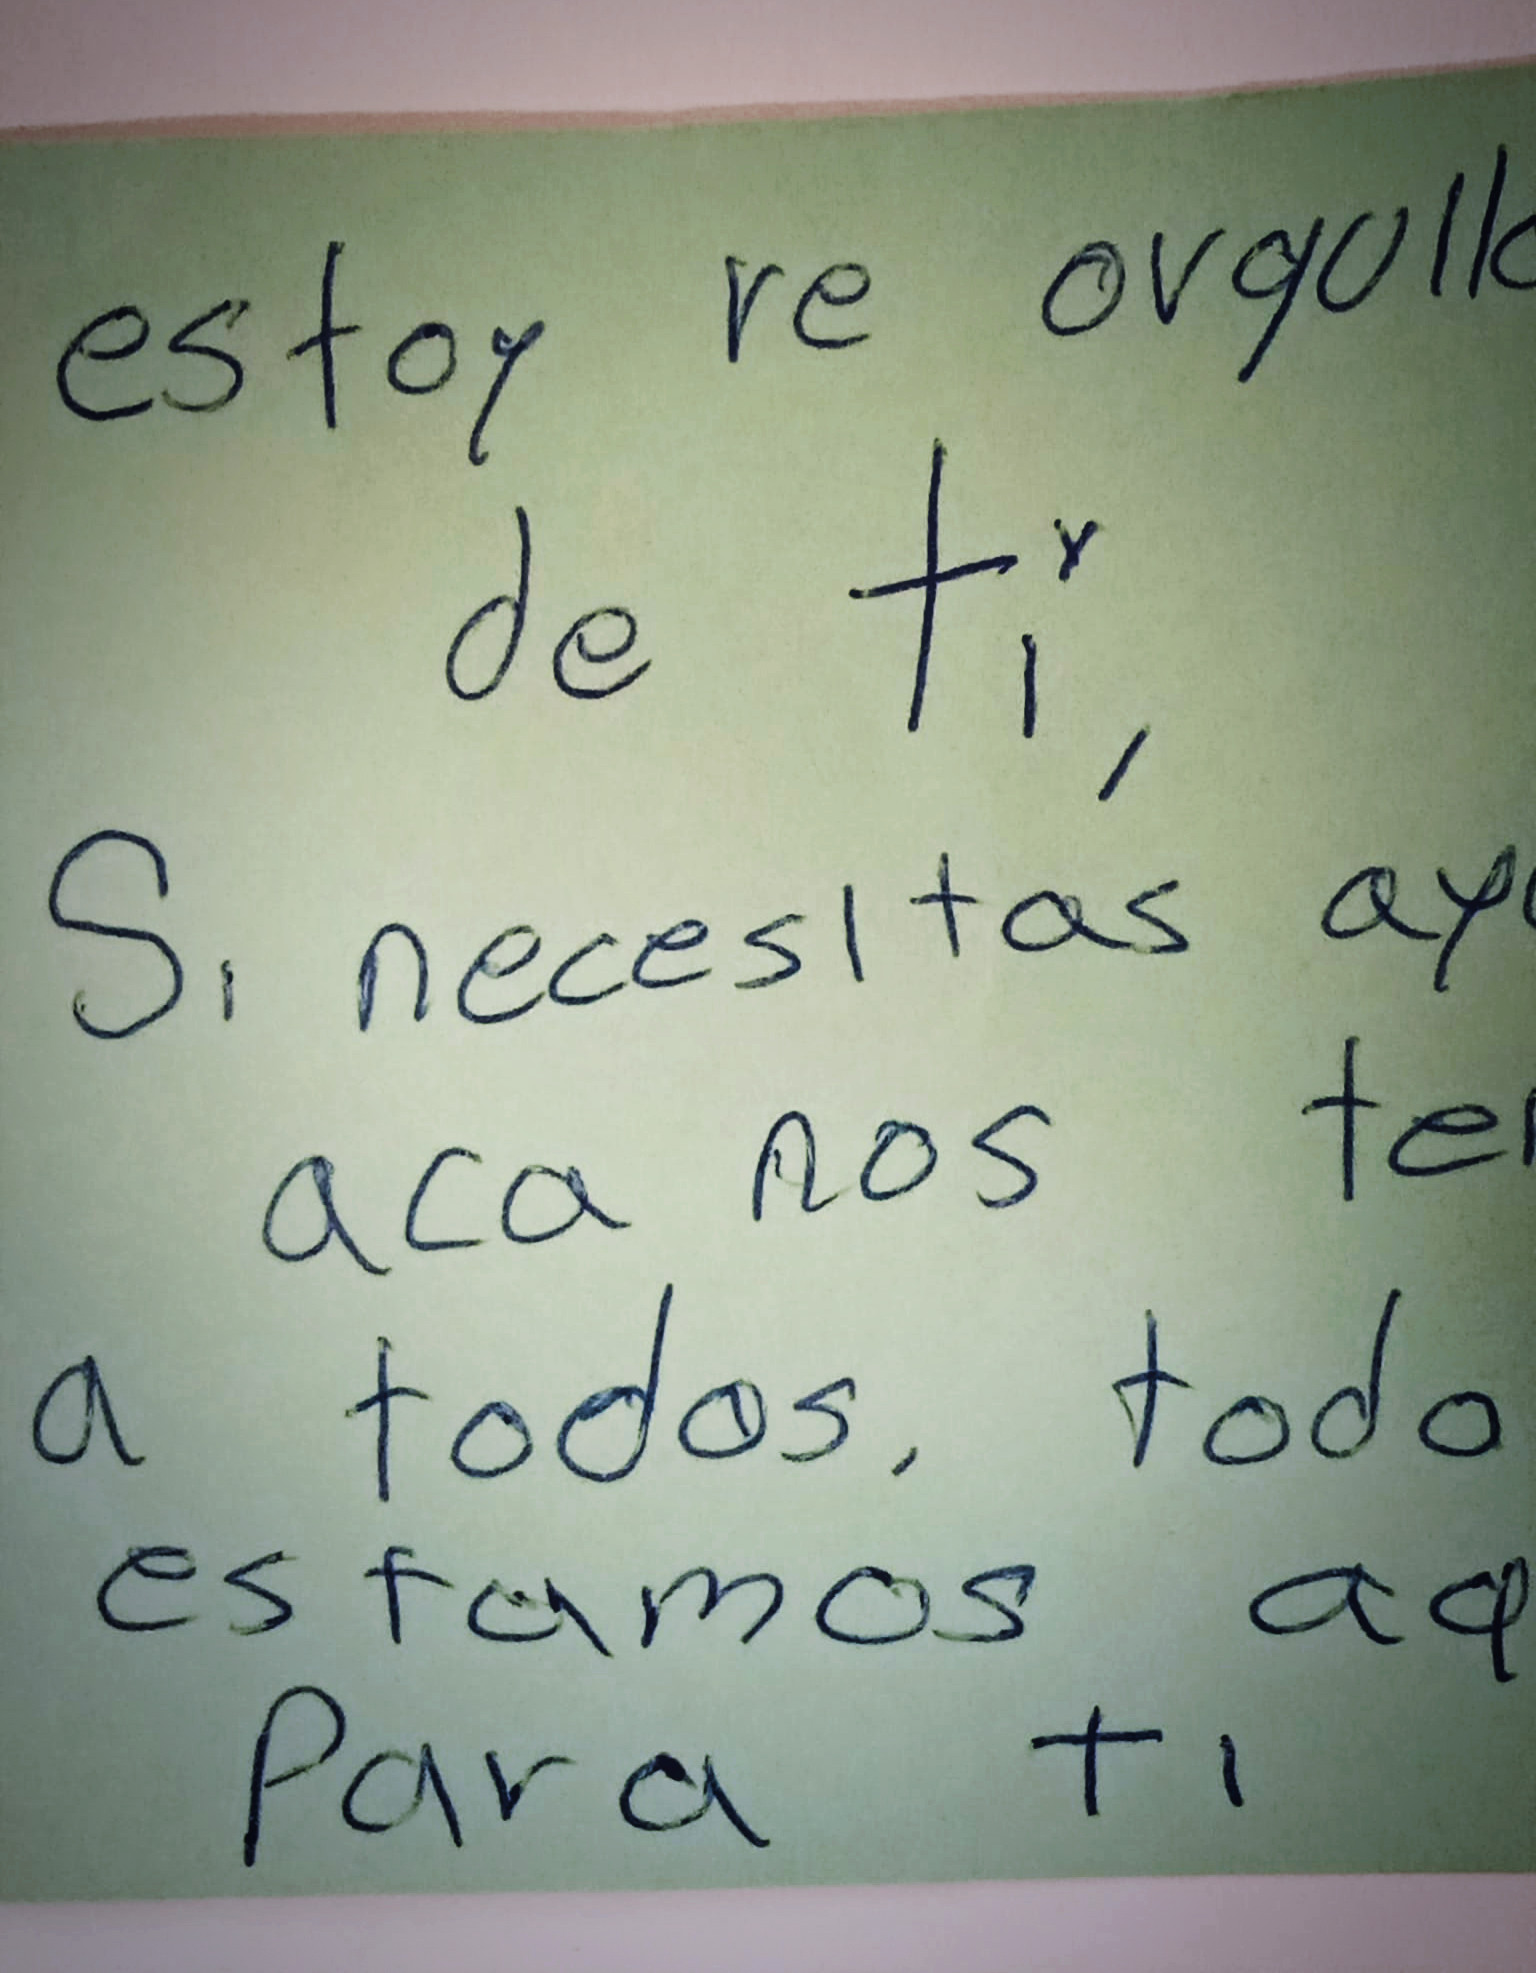 estoy re orgullo
de ti,
Si necesitas ay
aca nos te
a todos, todo
estamos aq
Para ti